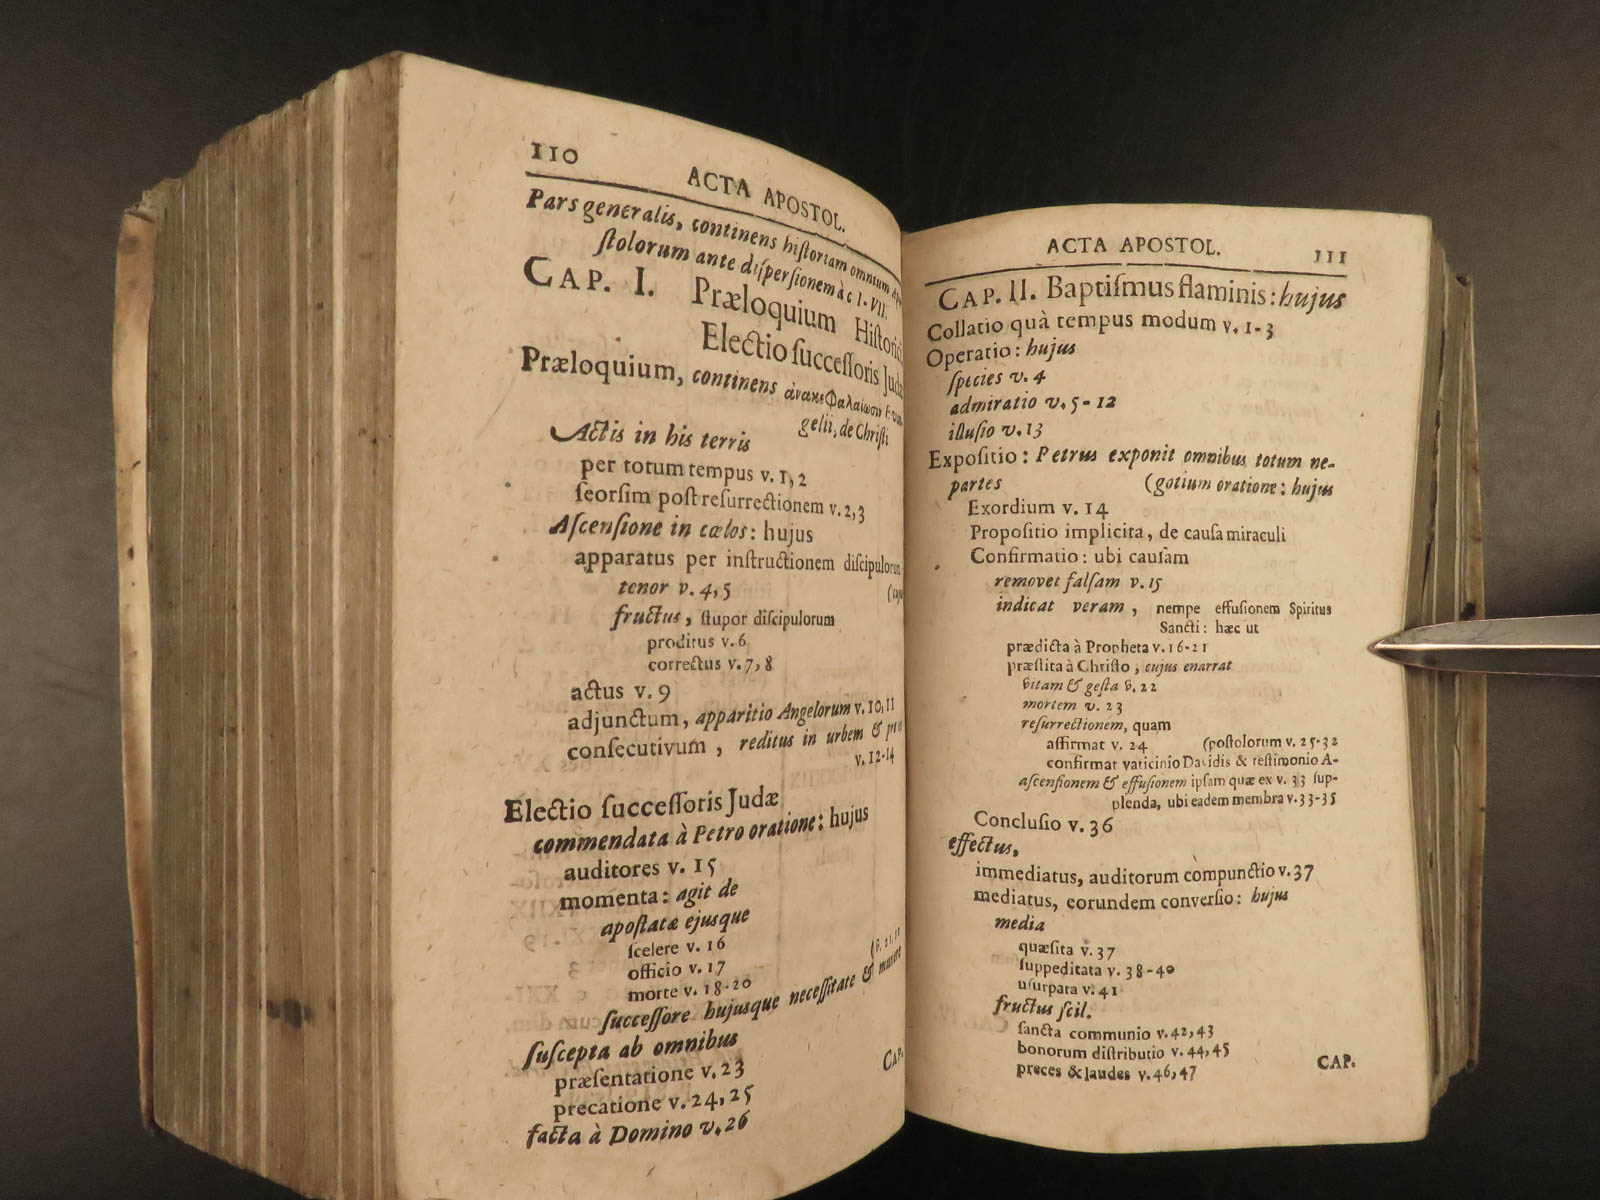 110
ACTA APOSTOL.
Pars generalis, continens hiſtoriam omnium
ſtolorum ante diſperſionem à c I-VII.
CAP. I. Præloquium Hiſtorici
Electio ſucceſſoris Judæ
Præloquium, continens ἀνακεφαλαίωσιν
gelii, de Chriſti
Actis in his terris
per totum tempus v. 1, 2
ſeorſim poſt reſurrectionem v. 2, 3
Aſcenſione in cœlos: hujus
apparatus per inſtructionem diſcipulorum
tenor v. 4, 5
fructus, ſtupor diſcipulorum
proditus v. 6
correctus v. 7, 8
actus v. 9
adjunctum, apparitio Angelorum v. 10, 11
conſecutivum, reditus in urbem &
v. 12-14
Electio ſucceſſoris Judæ
commendata à Petro oratione: hujus
auditores v. 15
momenta: agit de
apoſtatæ ejusque
ſcelere v. 16
officio v. 17
morte v. 18-20
ſucceſſore hujusque neceſſitate & munere
ſuſcepta ab omnibus
præſentatione v. 23
precatione v. 24, 25
facta à Domino v. 26
CAP.
ACTA APOSTOL.
111
CAP. II. Baptiſmus flaminis: hujus
Collatio quà tempus modum v. 1-3
Operatio: hujus
ſpecies v. 4
admiratio v. 5-12
illuſio v. 13
Expoſitio: Petrus exponit omnibus totum ne-
partes (gotium oratione: hujus
Exordium v. 14
Propoſitio implicita, de cauſa miraculi
Confirmatio: ubi cauſam
removet falſam v. 15
indicat veram, nempe effuſionem Spiritus
Sancti: hæc ut
prædicta à Propheta v. 16-21
præſtita à Chriſto, cujus enarrat
vitam & geſta v. 22
mortem v. 23
reſurrectionem, quam
affirmat v. 24 (poſtolorum v. 25-32
confirmat vaticinio Davidis & teſtimonio A-
aſcenſionem & effuſionem ipſam quæ ex v. 33 ſup-
plenda, ubi eadem membra v. 33-35
Concluſio v. 36
effectus,
immediatus, auditorum compunctio v. 37
mediatus, eorundem converſio: hujus
media
quæſita v. 37
ſuppeditata v. 38-40
uſurpata v. 41
fructus ſcil.
ſancta communio v. 42, 43
bonorum diſtributio v. 44, 45
preces & laudes v. 46, 47
CAP.